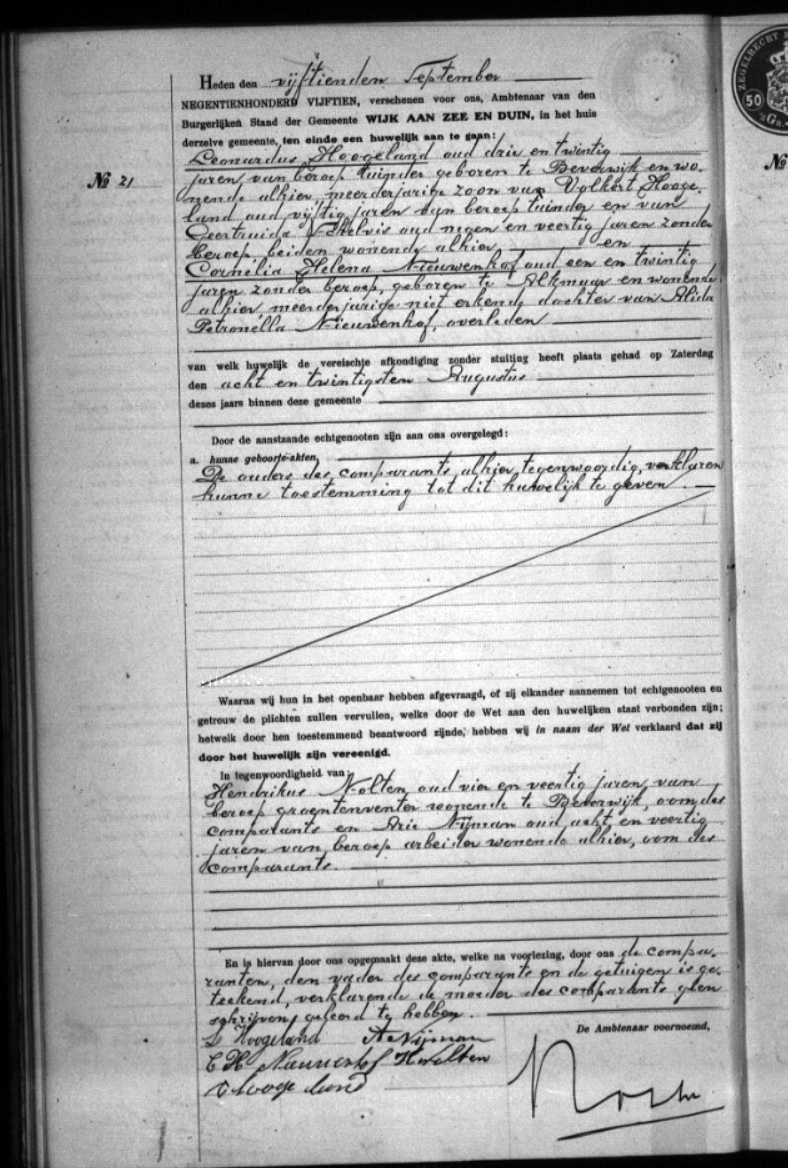 Heden den vijftienden September
NEGENTIENHONDERD VIJFTIEN, verschenen voor ons, Ambtenaar van den
Burgerlijken Stand der Gemeente WIJK AAN ZEE EN DUIN, in het huis
derzelve gemeente, ten einde een huwelijk aan te gaan:
Leonardus Hoogeland oud drie en twintig
№ 21
jaren van beroep tuinder geboren te Beverwijk en wo-
nende alhier, meerderjarige zoon van Volkert Hooge-
land oud vijftig jaren van beroep tuinder en van
Geertruida oud negen en veertig jaren zonder
beroep, beiden wonende alhier, en
Cornelia Helena Nieuwenhof oud een en twintig
jaren zonder beroep, geboren te Alkmaar en wonende
alhier meerderjarige niet erkende dochter van Alida
Petronella Nieuwenhof, overleden
van welk huwelijk de vereischte afkondiging zonder stuiting heeft plaats gehad op Zaterdag
den acht en twintigsten Augustus
dezes jaars binnen deze gemeente
Door de aanstaande echtgenooten zijn aan ons overgelegd:
a. hunne geboorte-akten,
De ouders des comparants, alhier tegenwoordig, verklaren
hunne toestemming tot dit huwelijk te geven.
Waarna wij hun in het openbaar hebben afgevraagd, of zij elkander aannemen tot echtgenooten en
getrouw de plichten zullen vervullen, welke door de Wet aan den huwelijken staat verbonden zijn;
hetwelk door hen toestemmend beantwoord zijnde, hebben wij in naam der Wet verklaard dat zij
door het huwelijk zijn vereenigd.
In tegenwoordigheid van:
Hendrikus Nolten, oud vier en veertig jaren, van
beroep groentenventer wonende te Beverwijk, oom des
comparants en Arie Nijman oud acht en veertig
jaren van beroep arbeider wonende alhier, oom des
comparants.
En is hiervan door ons opgemaakt deze akte, welke na voorlezing, door ons de compa-
ranten, den vader des comparants en de getuigen is ge-
teekend, verklarende de moeder des comparants geen
schrijven geleerd te hebben.
De Ambtenaar voornoemd,
L Hoogeland A Nijman
C H
V Hoogeland
ZEGELRECHT
50
№